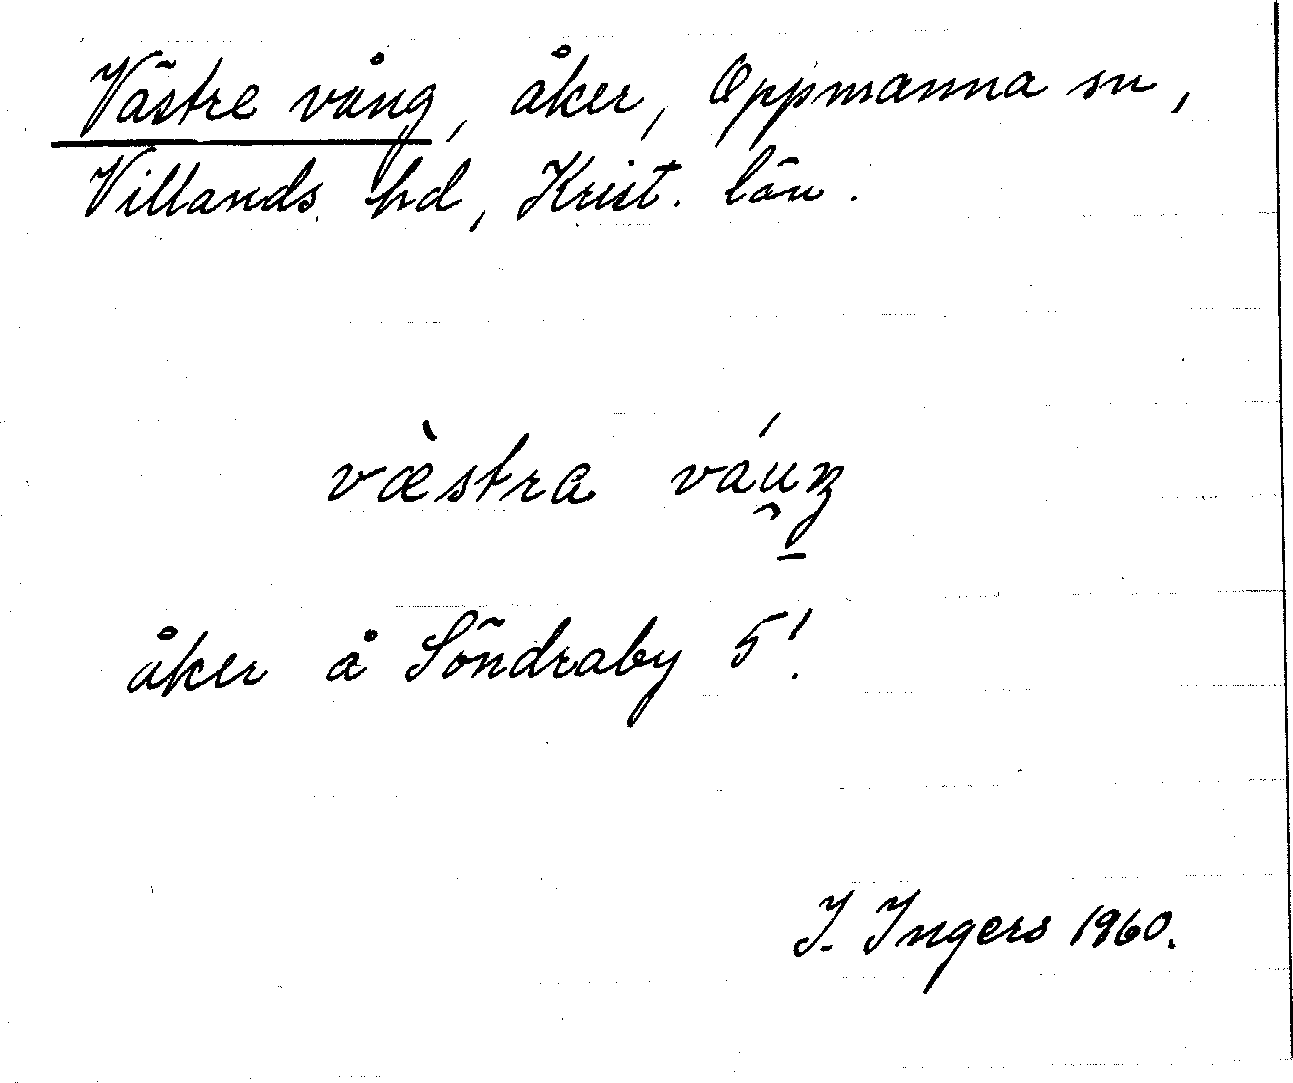 Västre vång, åker, Oppmanna sn,
Villands hd, Krist. län.
væ̀stra váu̯ŋ
åker å Söndraby 5!
I. Ingers 1960.